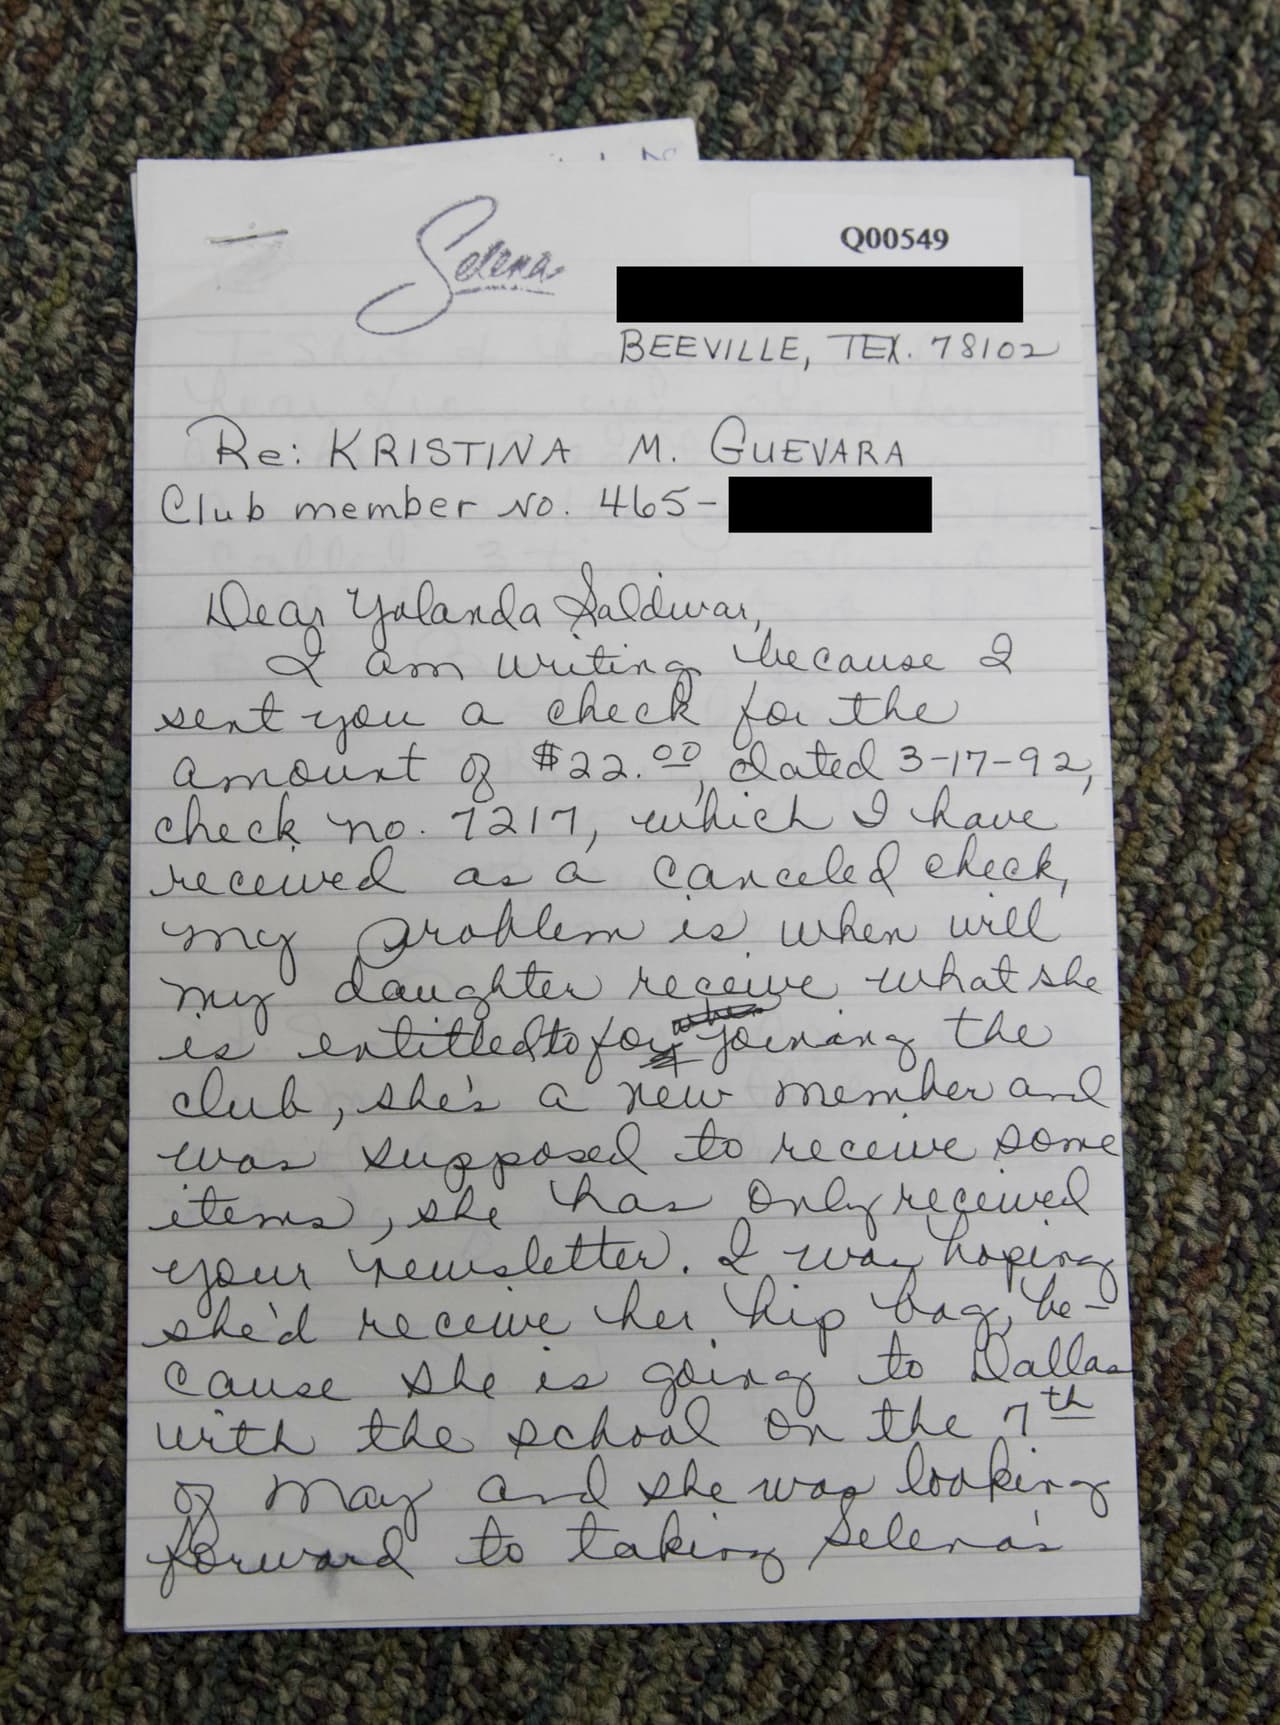 Selena
Q00549
BEEVILLE, TEX. 78102
Re: KRISTINA M. GUEVARA
Club member No. 465-
Dear Yolanda Saldivar,
I am writing because I
sent you a check for the
amount of $22.00, dated 3-17-92,
check no. 7217, which I have
received as a canceled check,
my problem is when will
my daughter receive what she
is entitled to for when joining the
club, she's a new member and
was supposed to receive some
items, she has only received
your newsletter. I was hoping
she'd receive her hip bag, be-
cause she is going to Dallas
with the school on the 7th
of May and she was looking
forward to taking Selena's